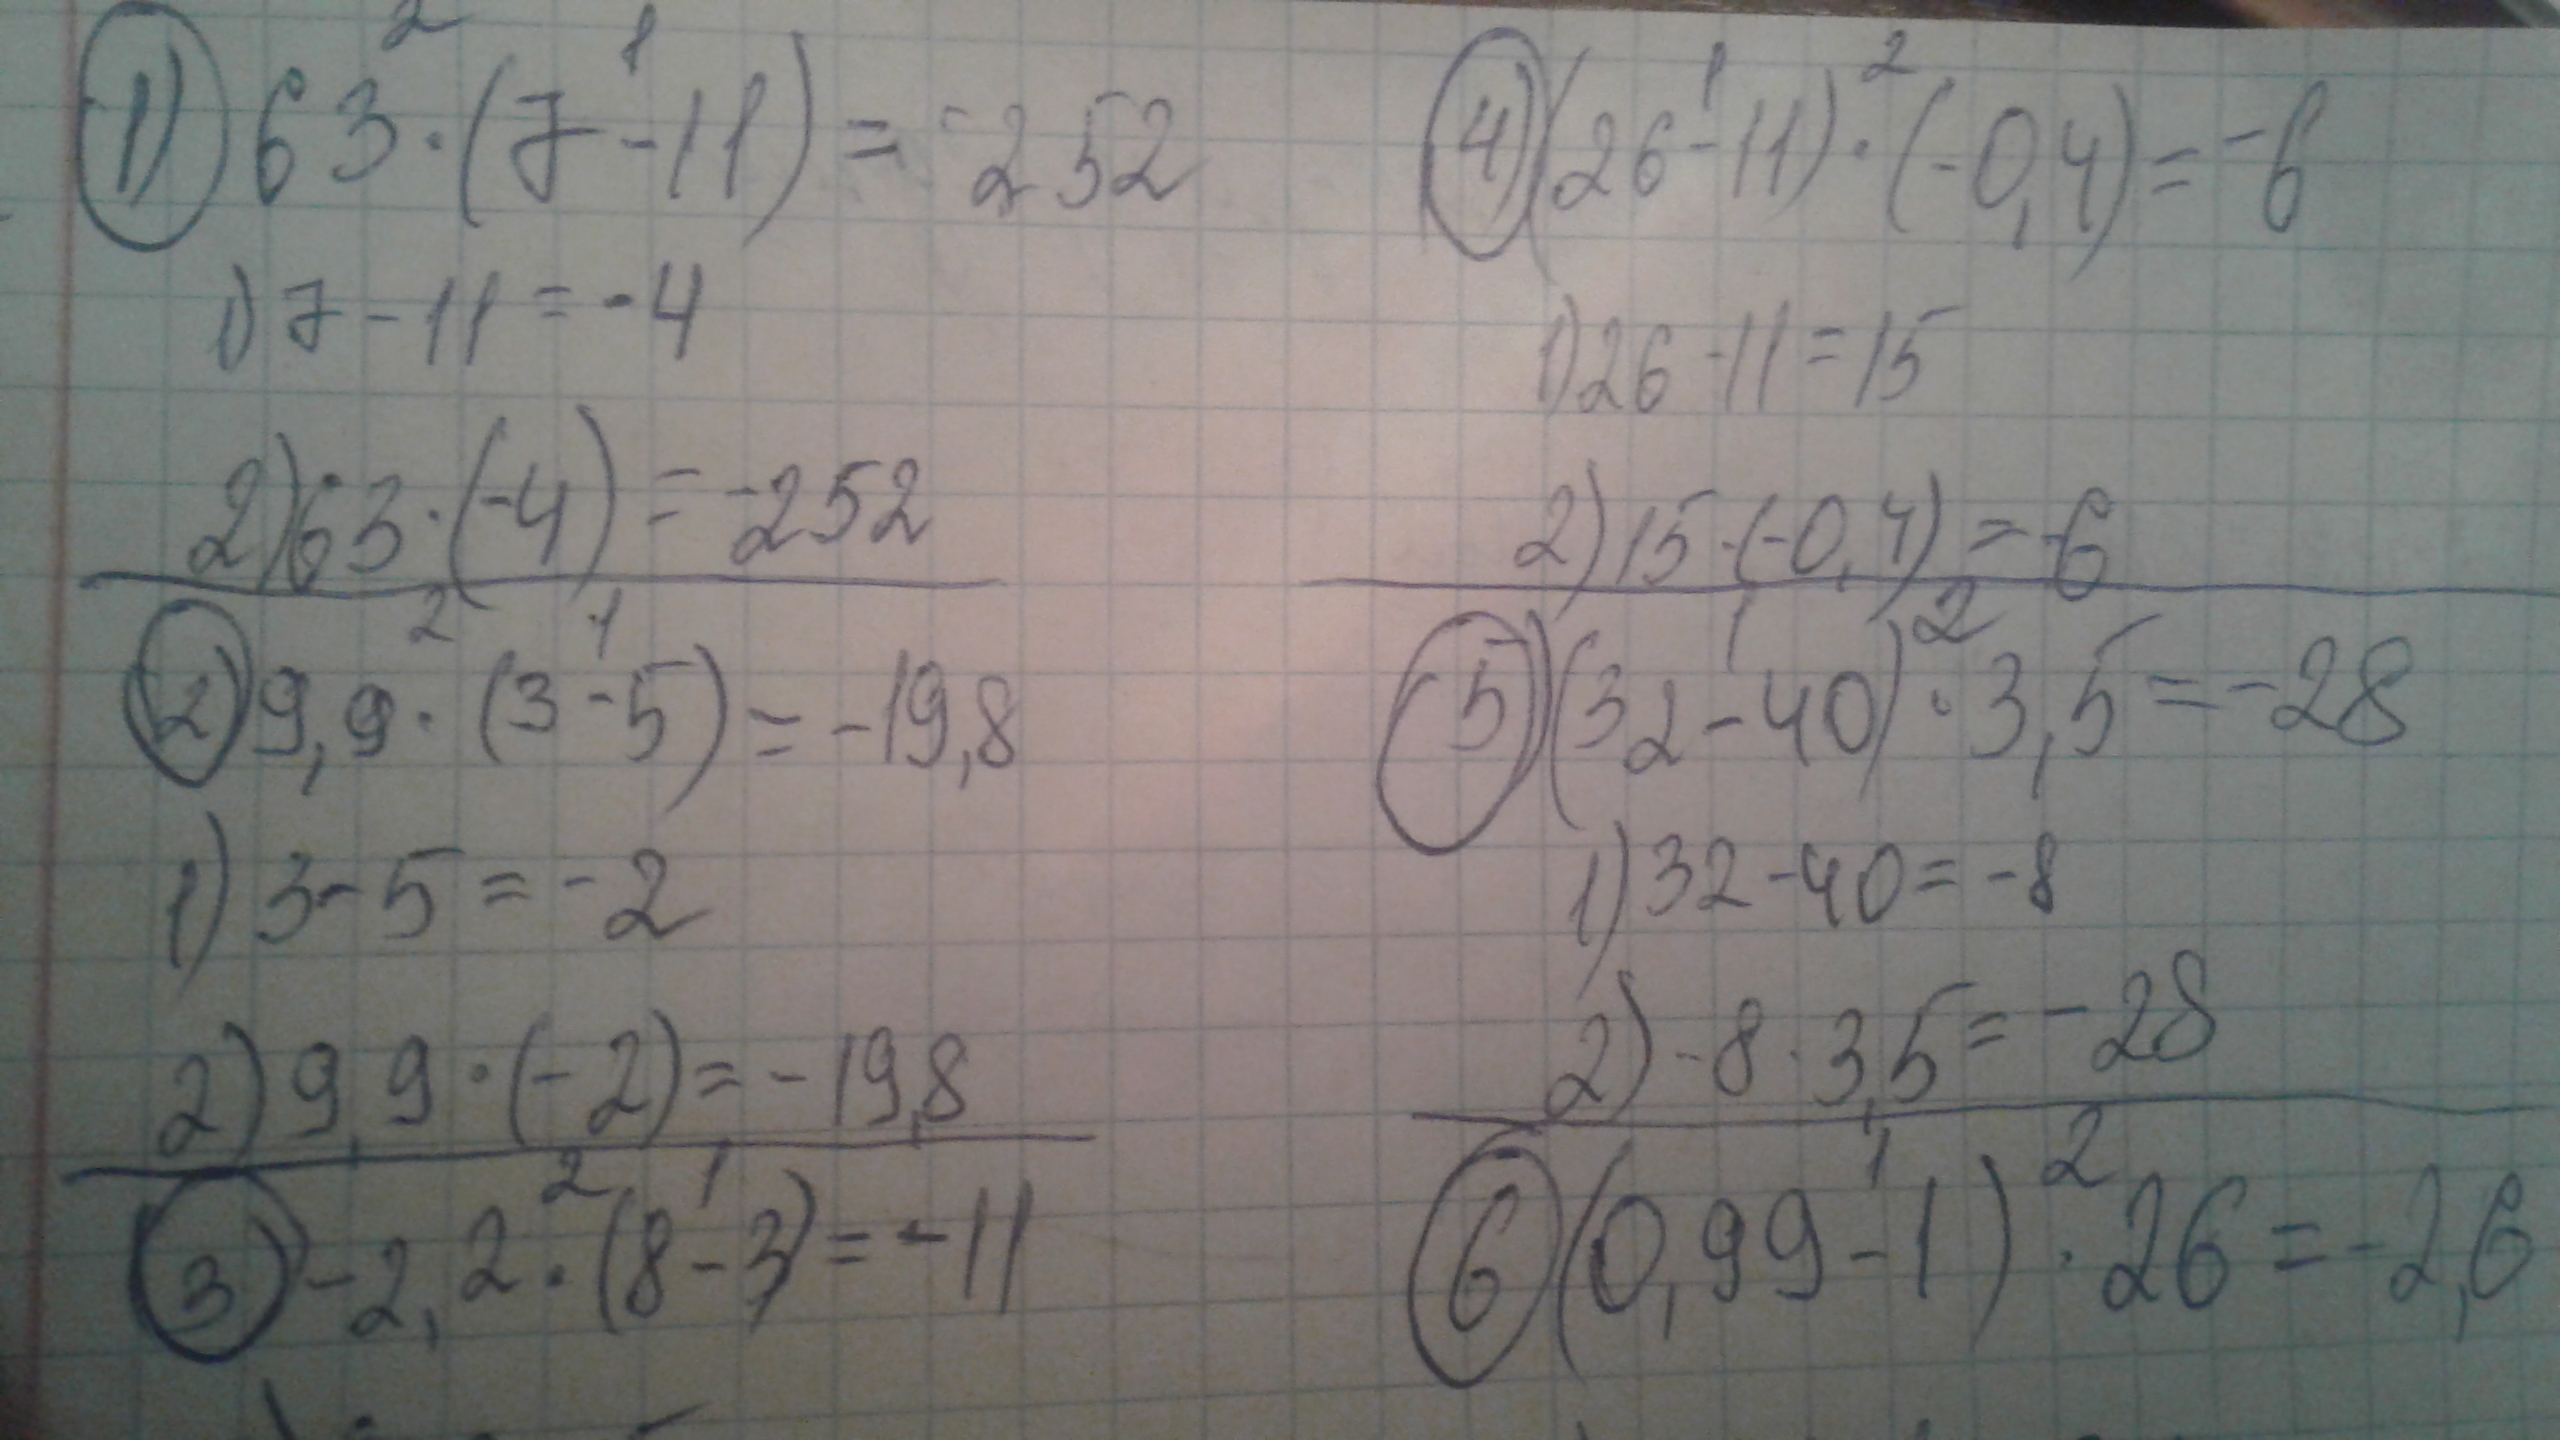 1) 63 · (7 - 11) = -252
1) 7 - 11 = -4
2) 63 · (-4) = -252
2) 9,9 · (3 - 5) = -19,8
1) 3 - 5 = -2
2) 9,9 · (-2) = -19,8
3) -2,2 · (8 - 3) = -11
4) (26 - 11) · (-0,4) = -6
1) 26 - 11 = 15
2) 15 · (-0,4) = -6
5) (32 - 40) · 3,5 = -28
1) 32 - 40 = -8
2) -8 · 3,5 = -28
6) (0,99 - 1) · 26 = -2,6